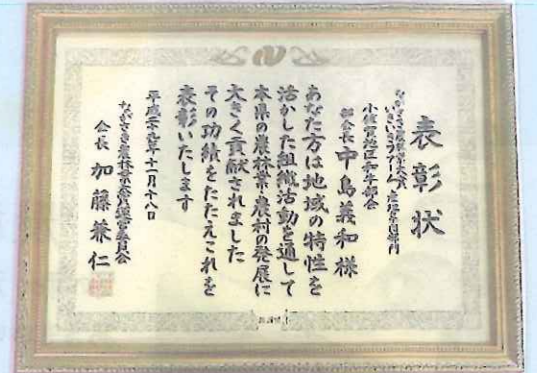 表彰状
ながさき農林業大賞
いきいきファーム 産地部門
小値賀地区和牛部会
部会長 中島義和様
あなた方は地域の特性を
活かした組織活動を通して
本県の農林業・農村の発展に
大きく貢献されました
その功績をたたえこれを
表彰いたします
平成二十九年十一月十八日
ながさき農林業大賞運営委員会
会長 加藤兼仁